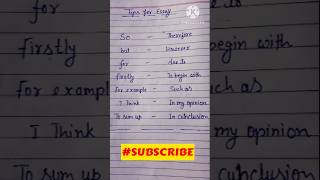 Tips for Essay
So - Therefore
but - However
for - due to
firstly - To begin with
for example - Such as
I think - In my opinion
To sum up - In Cunclusion
for
firstly
for example
I Think
To sum up
begin with
my opinion
#SUBSCRIBE